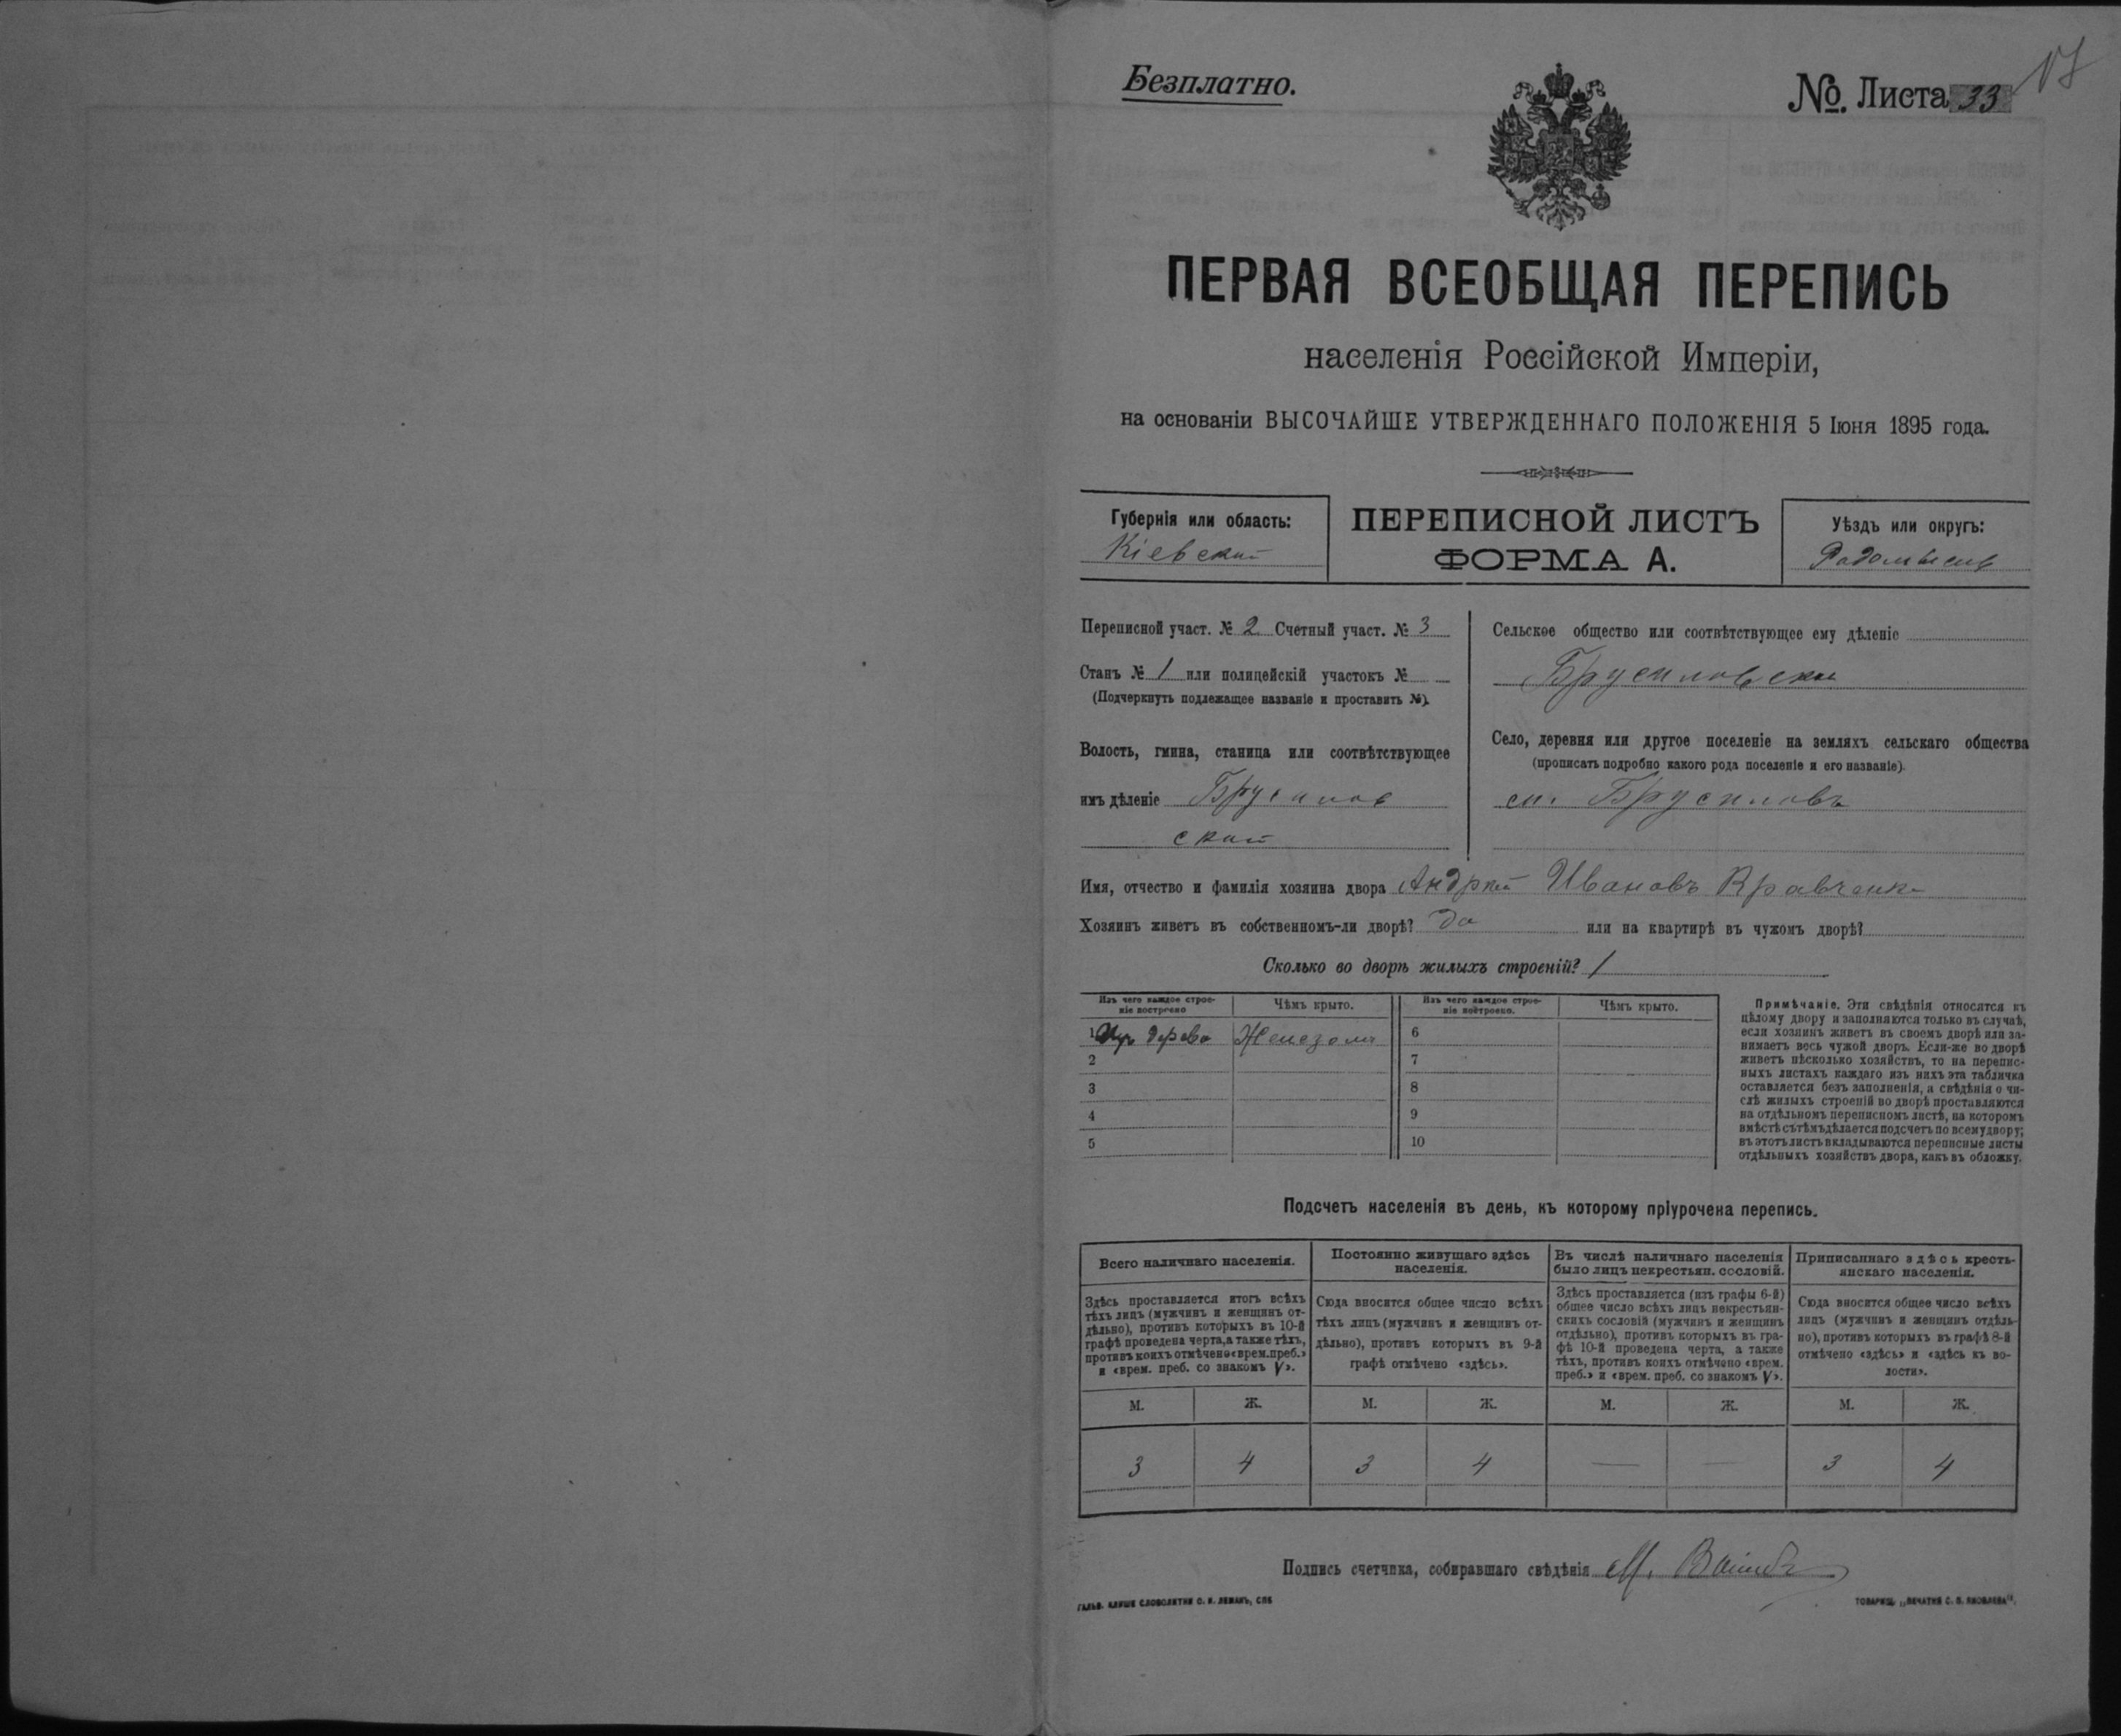 Безплатно.
№. Листа 33
ПЕРВАЯ ВСЕОБЩАЯ ПЕРЕПИСЬ
населенія Россійской Имперіи,
на основаніи ВЫСОЧАЙШЕ УТВЕРЖДЕННАГО ПОЛОЖЕНІЯ 5 Іюня 1895 года.
Губернія или область:
Кіевская
ПЕРЕПИСНОЙ ЛИСТЪ
ФОРМА А.
Уѣздъ или округъ:
Радомысль
Переписной участ. № 2 Счетный участ. № 3
Станъ № 1 или полицейскій участокъ №
(Подчеркнуть подлежащее названіе и проставить №).
Волость, гмина, станица или соотвѣтствующее
имъ дѣленіе Брусилов
ская
Сельское общество или соотвѣтствующее ему дѣленіе
Брусиловски
Село, деревня или другое поселеніе на земляхъ сельскаго общества
(прописать подробно какого рода поселеніе и его названіе).
м. Брусиловъ
Имя, отчество и фамилія хозяина двора Андрей Ивановъ Кравченко
Хозяинъ живетъ въ собственномъ-ли дворѣ? да или на квартирѣ въ чужомъ дворѣ?
Сколько во дворѣ жилыхъ строеній? 1
Изъ чего каждое строе-
ніе построено
Чѣмъ крыто.
Изъ чего каждое строе-
ніе построено.
Чѣмъ крыто.
1 Изъ дерева Железомъ 6
2 7
3 8
4 9
5 10
Примѣчаніе. Эти свѣдѣнія относятся къ
цѣлому двору и заполняются только въ случаѣ,
если хозяинъ живетъ въ своемъ дворѣ или за-
нимаетъ весь чужой дворъ. Если-же во дворѣ
живетъ нѣсколько хозяйствъ, то на перепис-
ныхъ листахъ каждаго изъ нихъ эта табличка
оставляется безъ заполненія, а свѣдѣнія о чи-
слѣ жилыхъ строеній во дворѣ проставляются
на отдѣльномъ переписномъ листѣ, на которомъ
вмѣстѣ сътѣмъ дѣлается подсчетъ по всему двору;
въ этотъ листъ вкладываются переписные листы
отдѣльныхъ хозяйствъ двора, какъ въ обложку.
Подсчетъ населенія въ день, къ которому пріурочена перепись.
Всего наличнаго населенія.
Постоянно живущаго здѣсь
населенія.
Въ числѣ наличнаго населенія
было лицъ некрестьян. сословій.
Приписаннаго здѣсь кресть-
янскаго населенія.
Здѣсь проставляется итогъ всѣхъ
тѣхъ лицъ (мужчинъ и женщинъ от-
дѣльно), противъ которыхъ въ 10-й
графѣ проведена черта, а также тѣхъ,
противъ коихъ отмѣчено «врем. преб.»
и «врем. преб. со знакомъ V».
Сюда вносится общее число всѣхъ
тѣхъ лицъ (мужчинъ и женщинъ от-
дѣльно), противъ которыхъ въ 9-й
графѣ отмѣчено «здѣсь».
Здѣсь проставляется (изъ графы 6-й)
общее число всѣхъ лицъ некрестьян-
скихъ сословій (мужчинъ и женщинъ
отдѣльно), противъ которыхъ въ гра-
фѣ 10-й проведена черта, а также
тѣхъ, противъ коихъ отмѣчено «врем.
преб.» и «врем. преб. со знакомъ V».
Сюда вносится общее число всѣхъ
лицъ (мужчинъ и женщинъ отдѣль-
но), противъ которыхъ въ графѣ 8-й
отмѣчено «здѣсь» и «здѣсь къ во-
лости».
М. Ж. М. Ж. М. Ж. М. Ж.
3 4 3 4 — — 3 4
Подпись счетчика, собиравшаго свѣдѣнія М.
ГАЛЬВ. КЛИШЕ СЛОВОЛИТНИ О. И. ЛЕМАНЪ, СПБ
ТОВАРИЩ. „ПЕЧАТНЯ С. П. ЯКОВЛЕВА“.